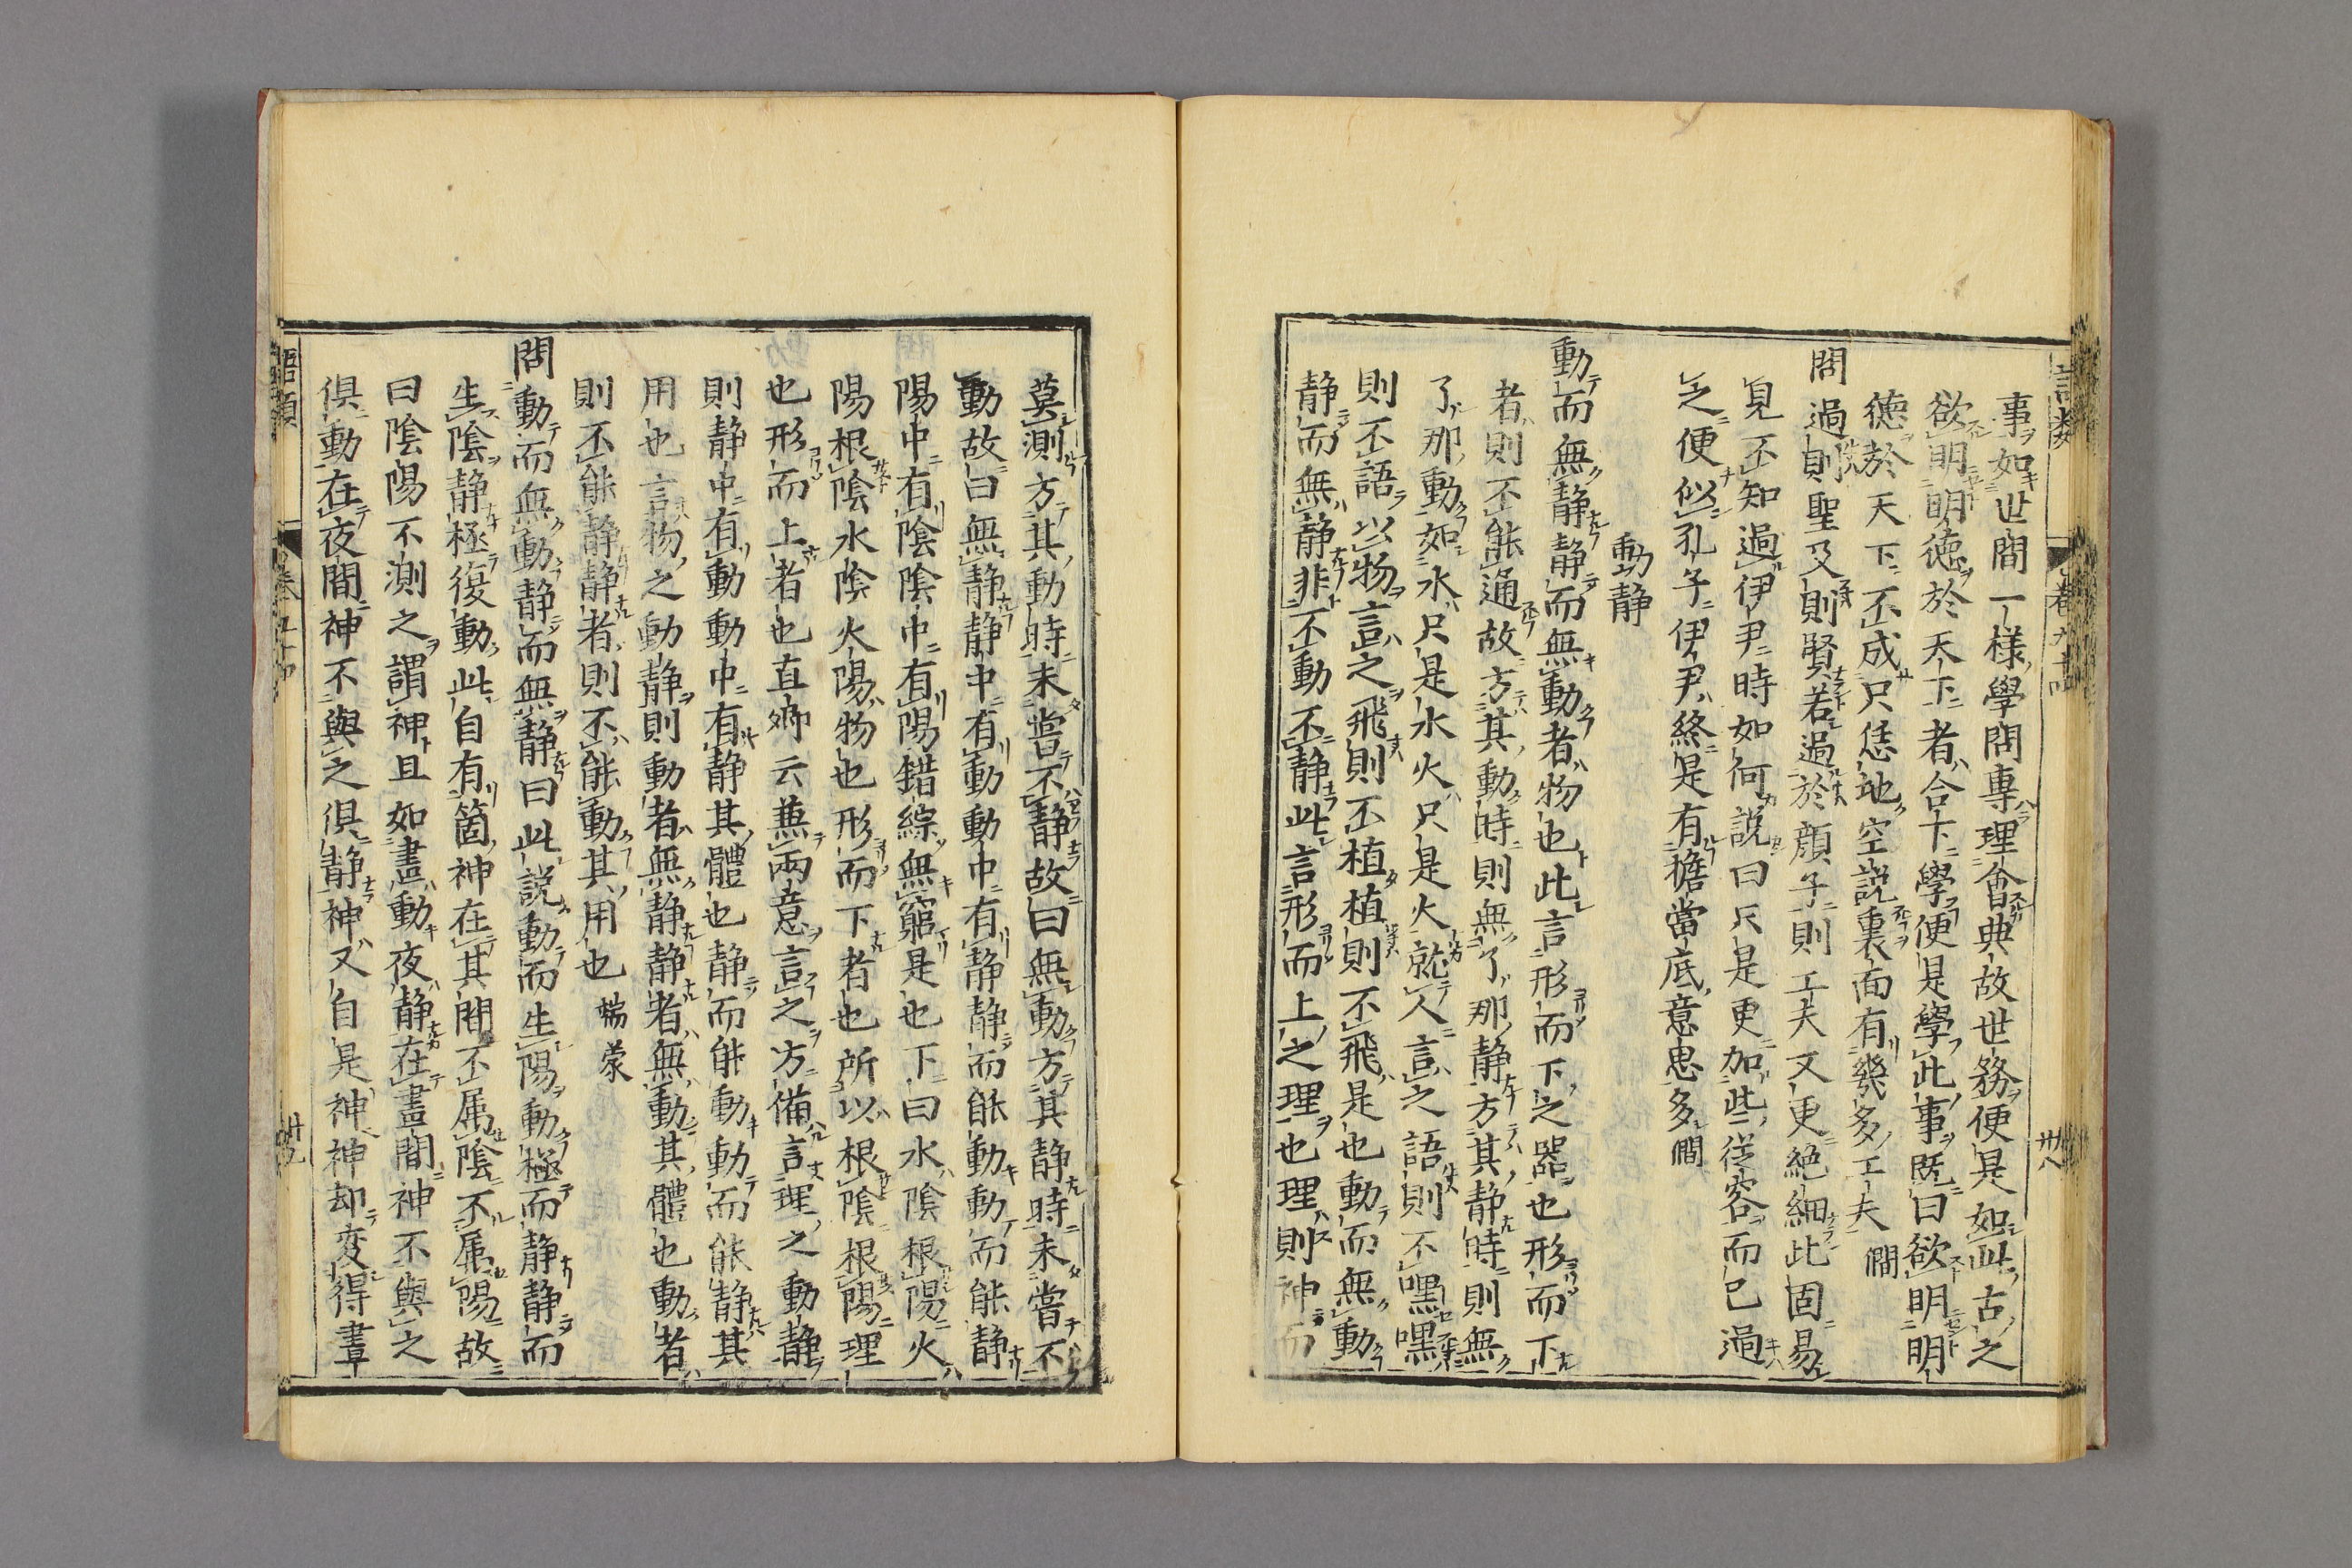 事如世間一樣學問專理會典故世務便是如此古之
欲明明德於天下者合下學便是學此事既曰欲明明
德於天下不成只恁地空説裏面有幾多工夫 僩
問 過則聖及則賢若過於顔子則工夫又更絶細此固易
見不知過伊尹時如何説曰只是更加些從容而已過
之便似孔子伊尹終是有擔當底意思多 僩
動静
動而無静静而無動者物也此言形而下之器也形而下
者則不能通故方其動時則無了那静方其静時則無
了那動如水只是水火只是火就人言之語則不嘿嘿
則不語以物言之飛則不植植則不飛是也動而無動
静而無静非不動不静此言形而上之理也理則神而
莫測方其動時未嘗不静故曰無動方其静時未嘗不
動故曰無静静中有動動中有静静而能動動而能静
陽中有陰陰中有陽錯綜無窮是也下曰水陰根陽火
陽根陰水陰火陽物也形而下者也所以根陰根陽理
也形而上者也直卿云兼兩意言之方備言理之動静
則静中有動動中有静其體也静而能動動而能静其
用也言物之動静則動者無静静者無動其體也動者
則不能静静者則不能動其用也 端蒙
問 動而無動静而無静曰此説動而生陽動極而静静而
生陰静極復動此自有箇神在其間不属陰不属陽故
曰陰陽不測之謂神且如晝動夜静在晝間神不與之
倶動在夜間神不與之倶静神又自是神神却変得晝